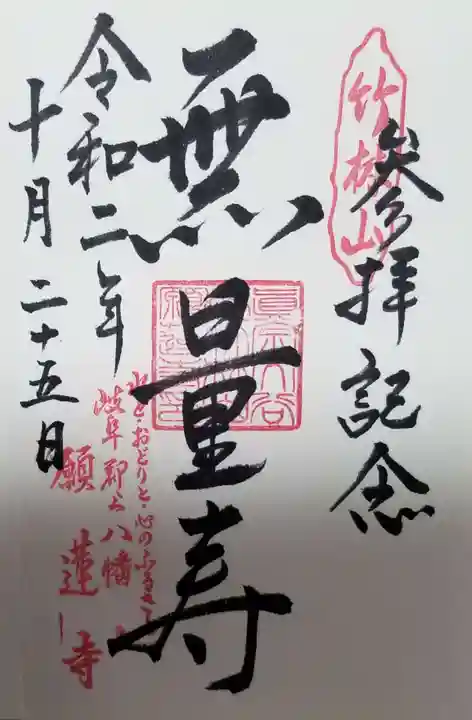 参拝記念
無量寿
水と・おどりと・心のふるさと
岐阜郡上八幡
願蓮寺
令和二年
十月二十五日